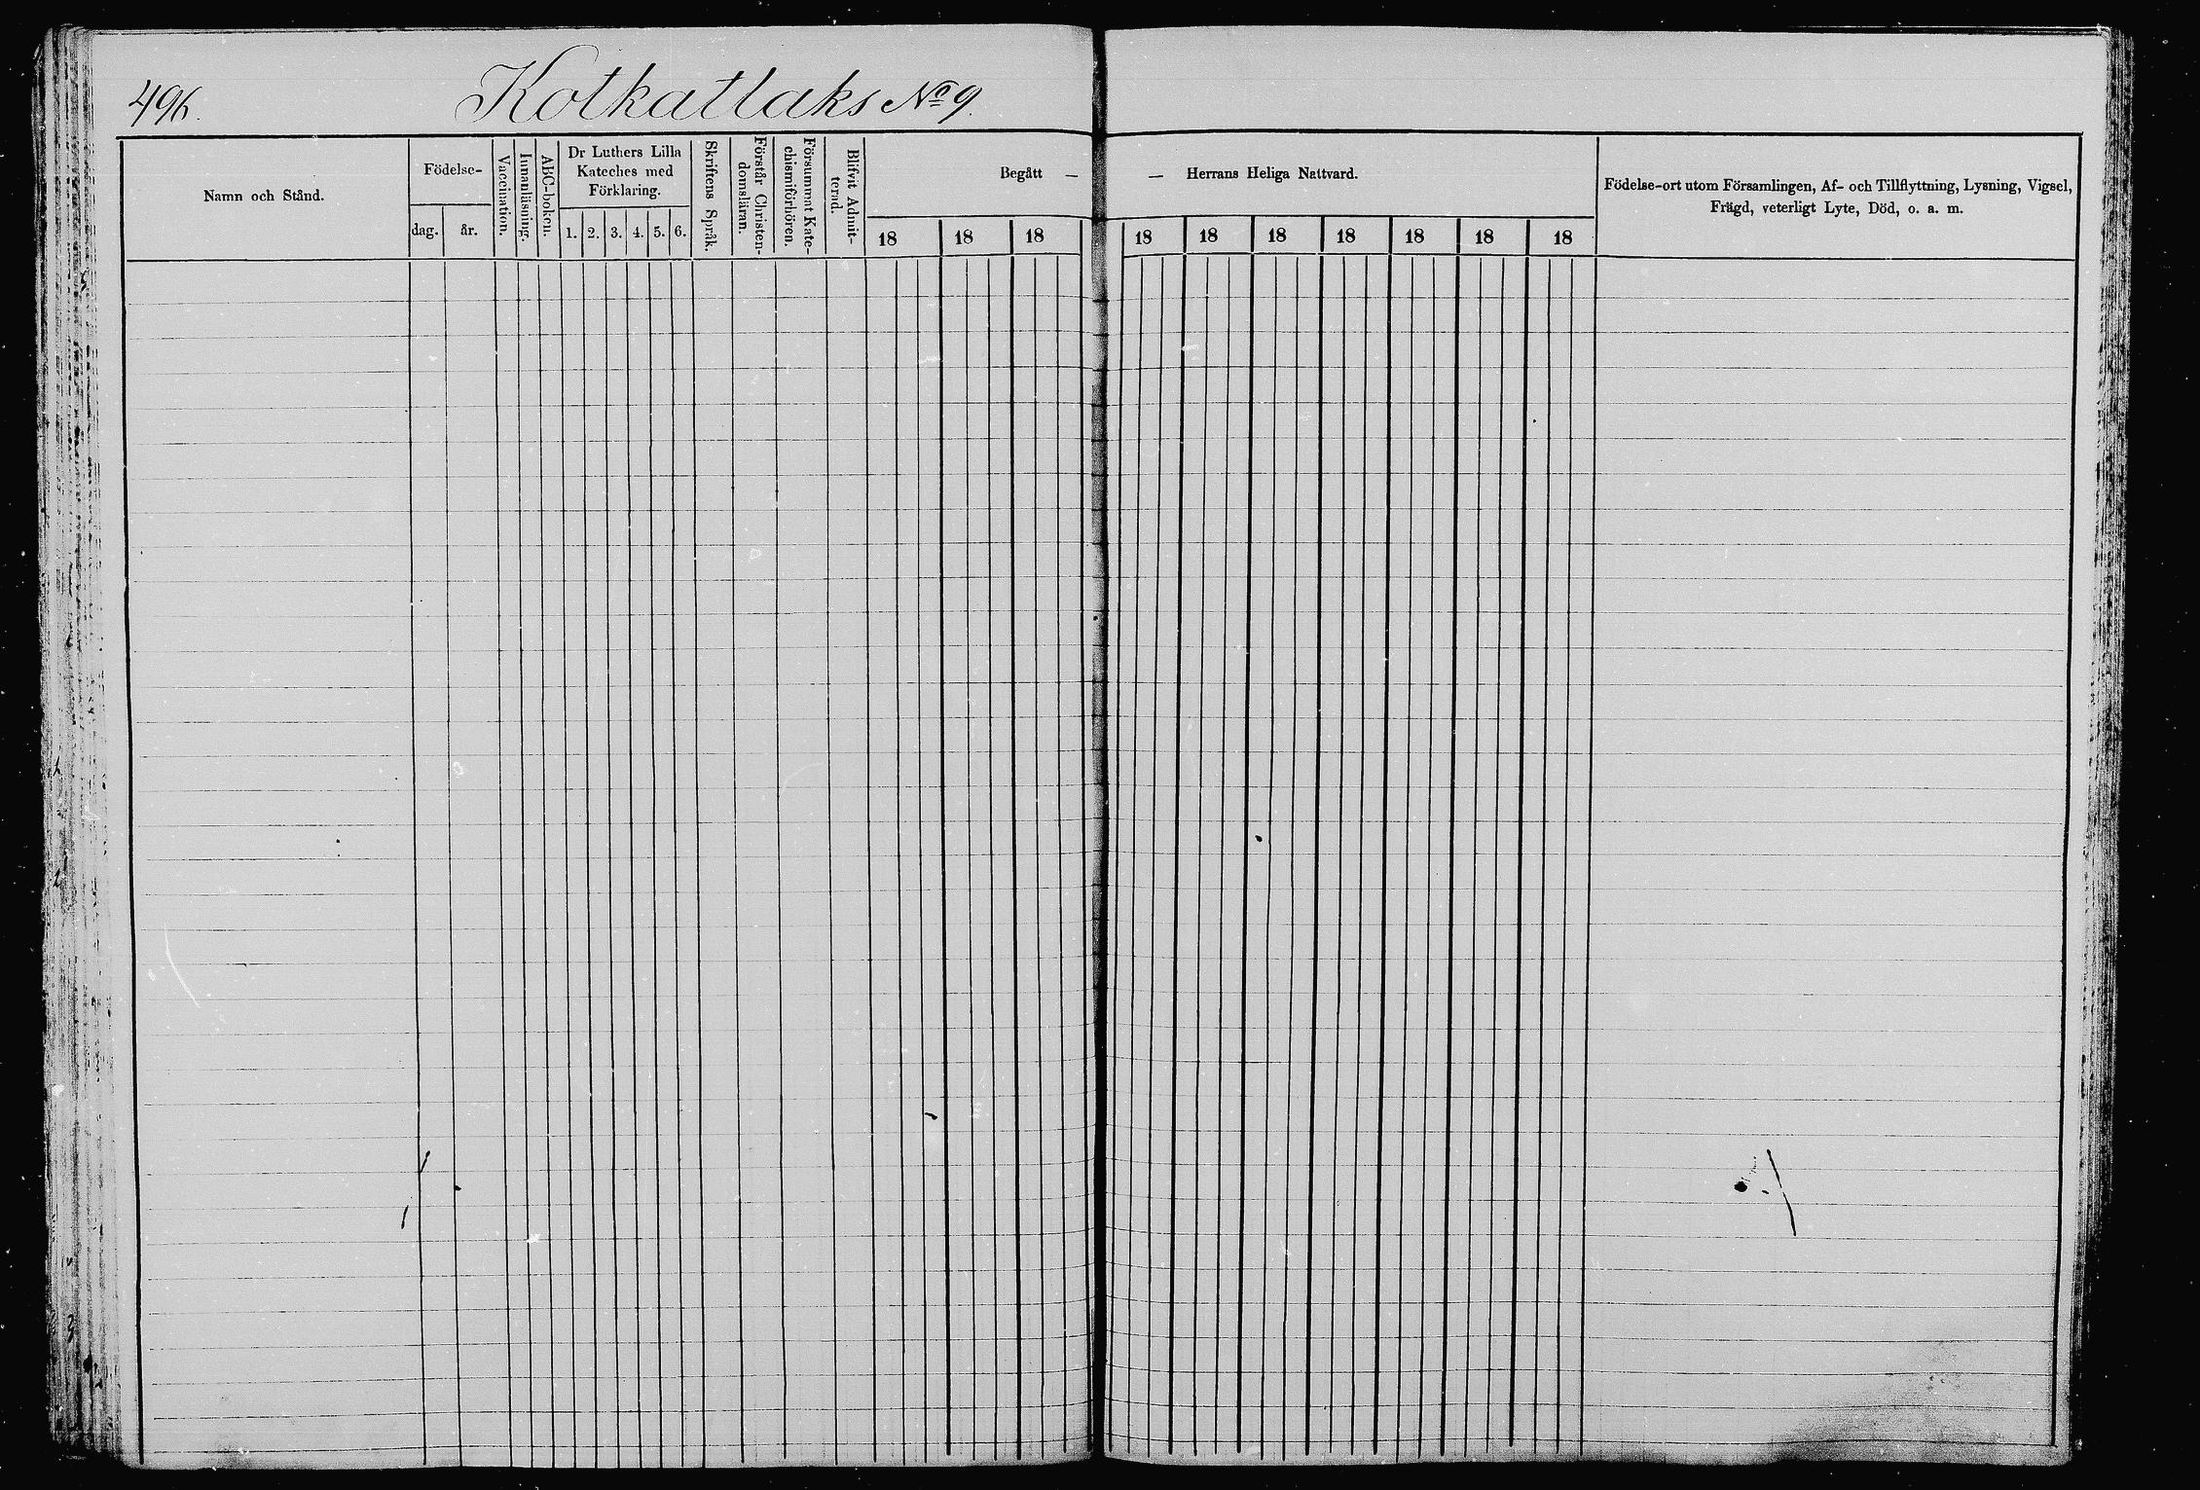 496.
Kotkatlaks No 9.
Namn och Stånd.
Födelse-
dag.
år.
Vaccination.
Innanläsning.
ABC-boken.
Dr Luthers Lilla
Kateches med
Förklaring.
1. 2. 3. 4. 5. 6.
Skriftens Språk.
Förstår Christen-
domsläran.
Försummat Kate-
chismiförhören.
Blifvit Admit-
terad.
Begått —
18 18 18
— Herrans Heliga Nattvard.
18 18 18 18 18 18 18
Födelse-ort utom Församlingen, Af- och Tillflyttning, Lysning, Vigsel,
Frägd, veterligt Lyte, Död, o. a. m.